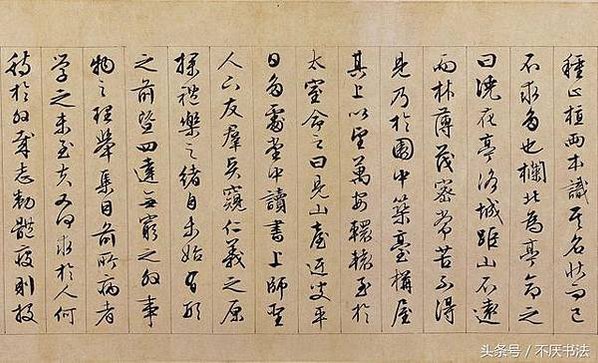 種止植兩本識其名狀而已
不求多也欄北為亭命之
曰澆花亭洛城距山不遠
而林薄茂密常苦不得
見乃於園中築臺構屋
其上以望萬安轘轅至於
太室命之曰見山臺迂叟平
日多處堂中讀書上師聖
人下友羣賢窺仁義之原
探禮樂之緒自未始有形
之前暨四達無窮之外事
物之理舉集目前所病者
学之未至夫又何求於人何
待於外哉志勌體疲則投
头条号/不厌书法